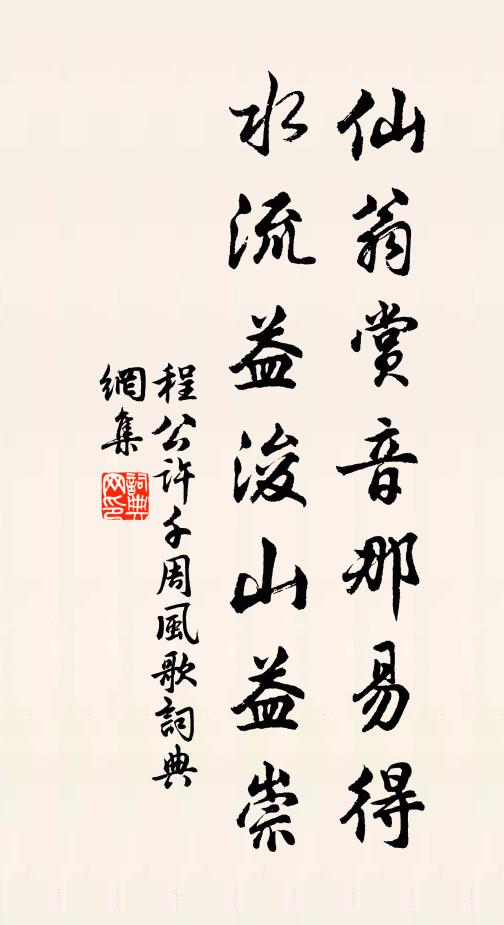 仙翁賞音那易得
水流益浚山益崇
程公許千周風歌詞典
網集
詞典
网印